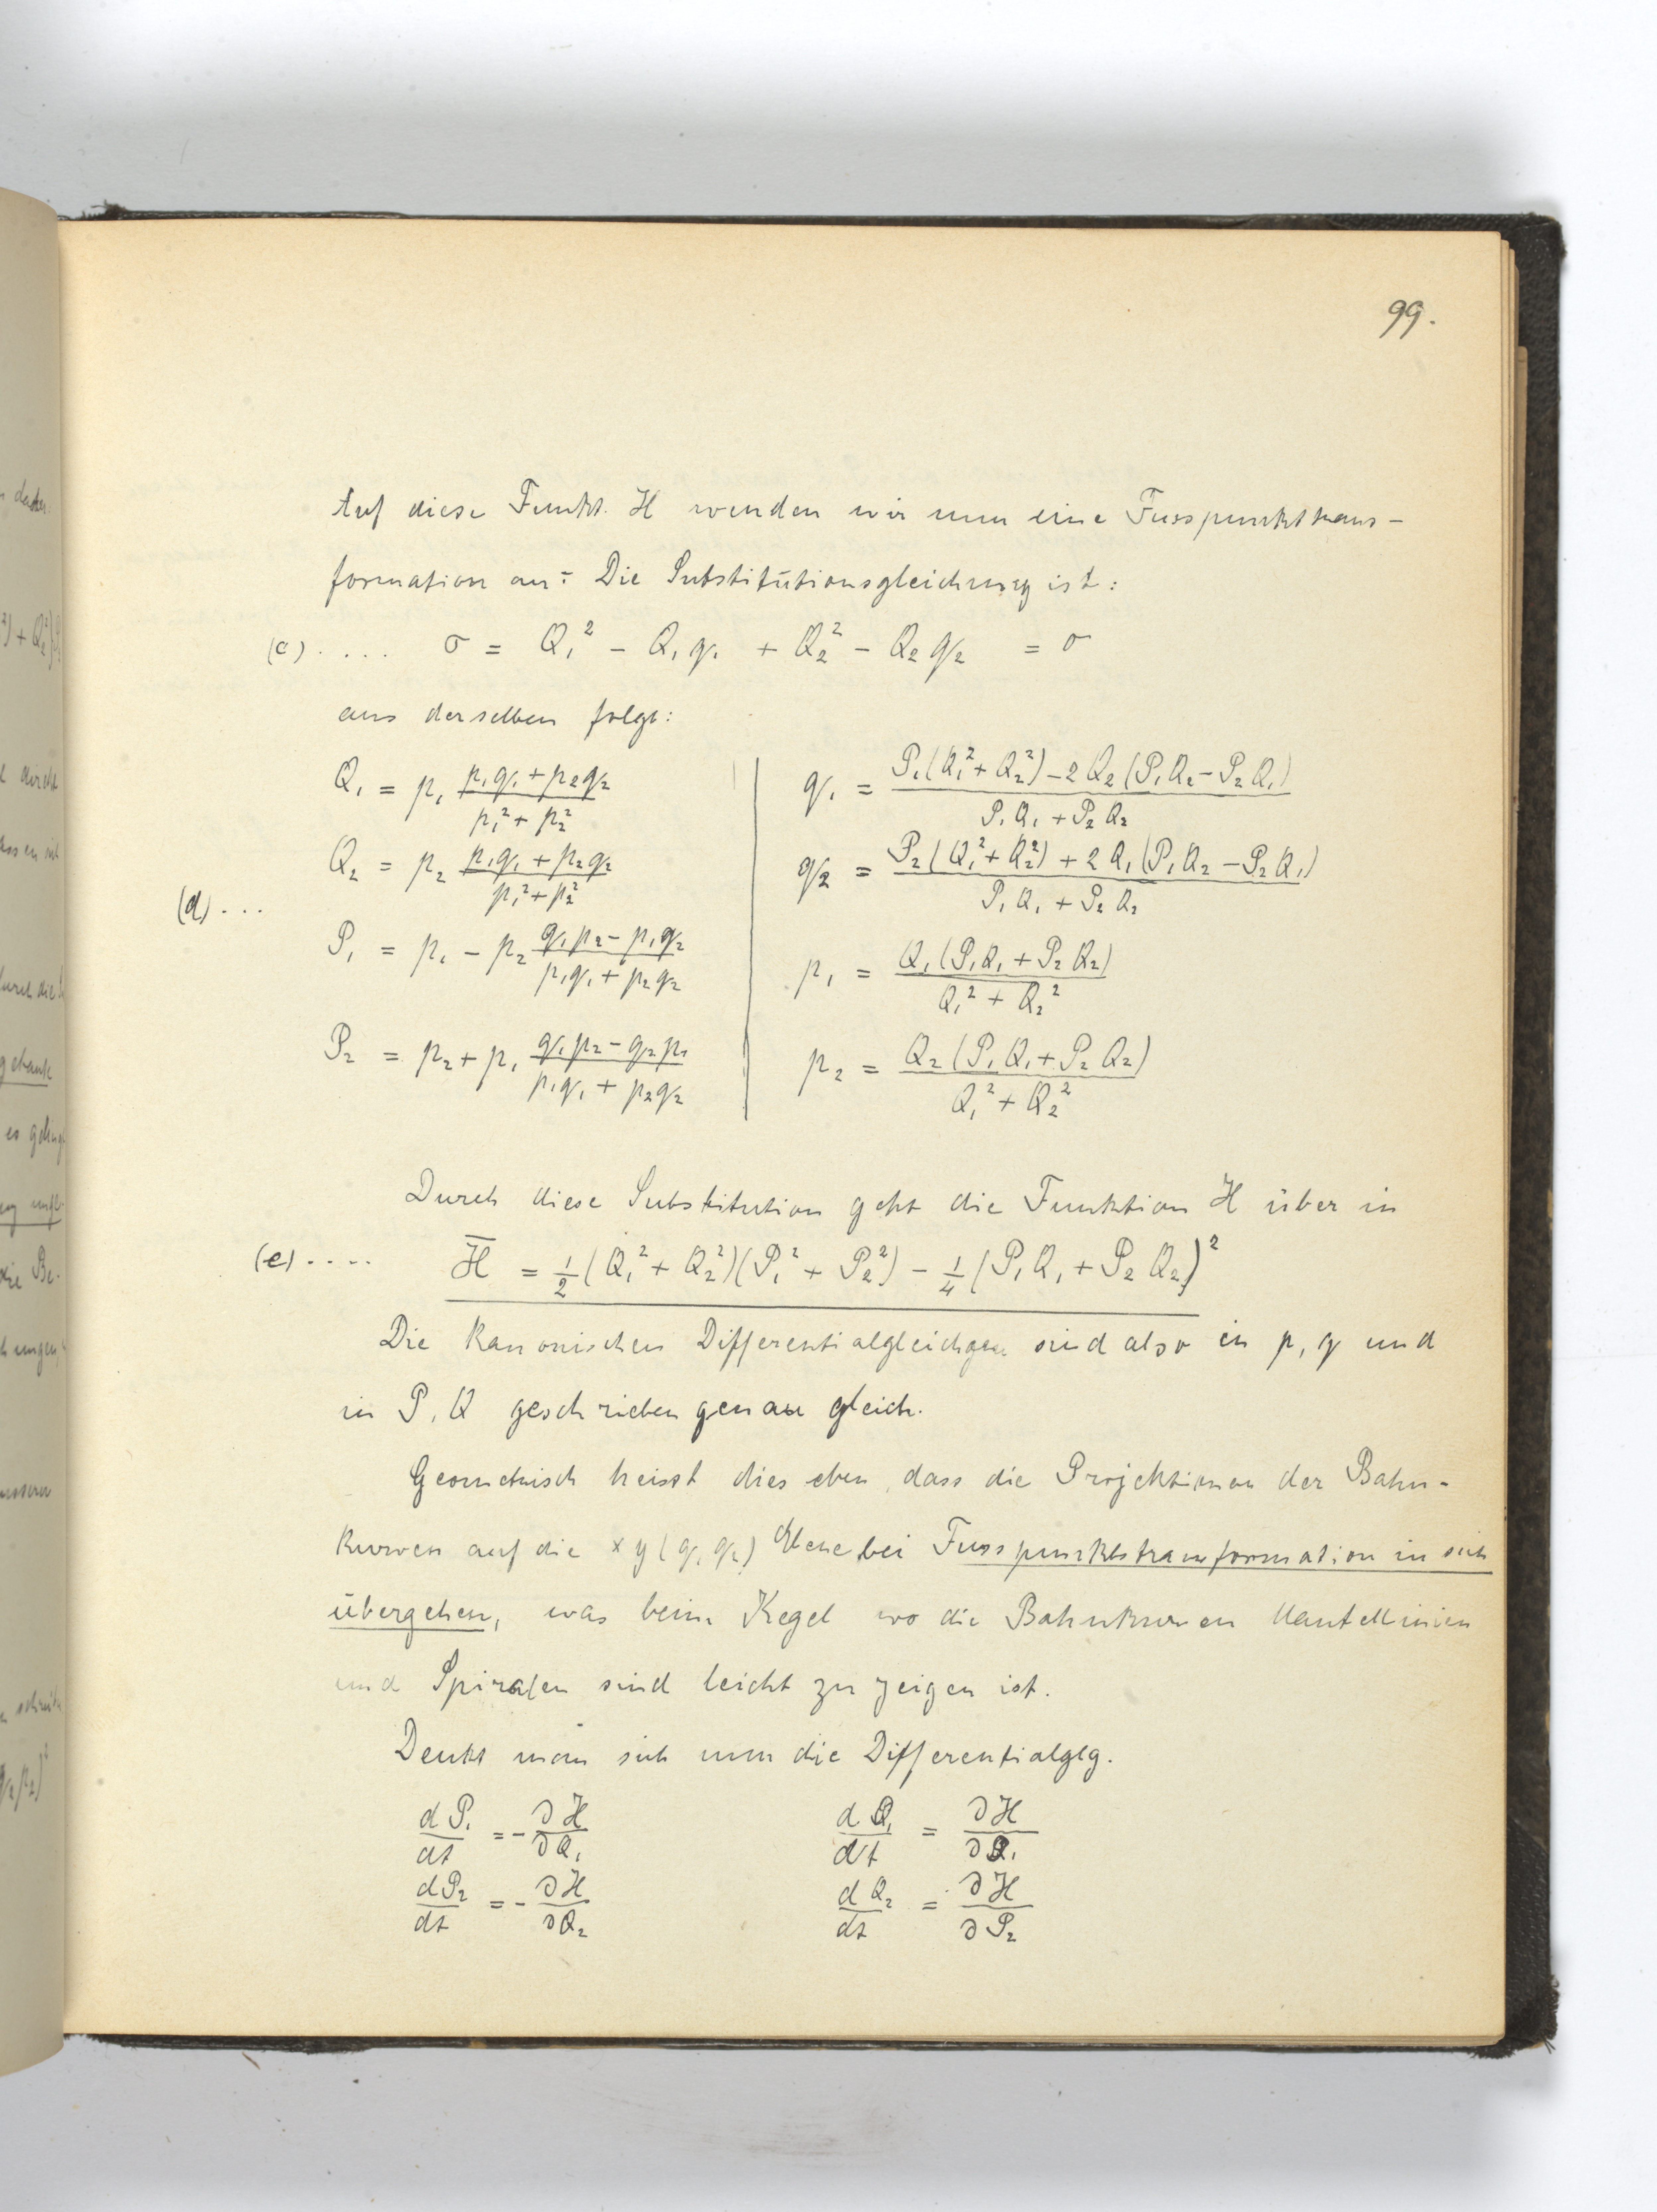 99.
Auf diese Funkt. H wenden wir nun eine Fusspunktstrans-
formation an: Die Substitutionsgleichung ist:
(c) .... σ = Q₁² - Q₁q₁ + Q₂² - Q₂q₂ = σ
aus derselben folgt:
Q₁ = p₁ (p₁q₁ + p₂q₂)/(p₁² + p₂²) | q₁ = (P₁(Q₁² + Q₂²) - 2Q₂(P₁Q₂ - P₂Q₁))/(P₁Q₁ + P₂Q₂)
Q₂ = p₂ (p₁q₁ + p₂q₂)/(p₁² + p₂²) | q₂ = (P₂(Q₁² + Q₂²) + 2Q₁(P₁Q₂ - P₂Q₁))/(P₁Q₁ + P₂Q₂)
(d) ...
P₁ = p₁ - p₂ (q₁p₂ - p₁q₂)/(p₁q₁ + p₂q₂) | p₁ = Q₁(P₁Q₁ + P₂Q₂)/(Q₁² + Q₂²)
P₂ = p₂ + p₁ (q₁p₂ - q₂p₁)/(p₁q₁ + p₂q₂) | p₂ = Q₂(P₁Q₁ + P₂Q₂)/(Q₁² + Q₂²)
Durch diese Substitution geht die Funktion H über in
(e) .... H̅ = ½(Q₁² + Q₂²)(P₁² + P₂²) - ¼(P₁Q₁ + P₂Q₂)²
Die kanonischen Differentialgleichgen. sind also in p, q und
in P, Q geschrieben genau gleich.
Geometrisch heisst dies eben, dass die Projektionen der Bahn-
kurven auf die xy (q₁ q₂) Ebene bei Fusspunktstransformation in sich
übergehen, was beim Kegel wo die Bahnkurven Mantellinien
und Spiralen sind leicht zu zeigen ist.
Denkt man sich nun die Differentialglg.
dP₁/dt = - ∂H/∂Q₁ dQ₁/dt = ∂H/∂Q₁
dP₂/dt = - ∂H/∂Q₂ dQ₂/dt = ∂H/∂P₂